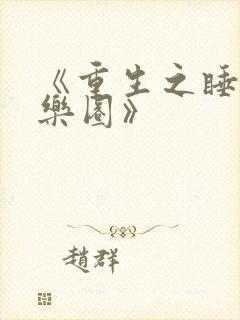 《重生之睡
樂園》
趙群